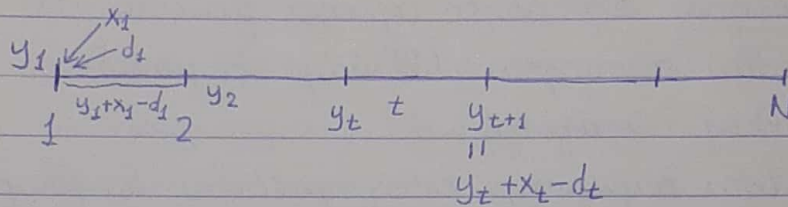 x₁
y₁ d₁
y₁+x₁-d₁ y₂ yₜ t yₜ₊₁
1 2 N
||
yₜ+xₜ-dₜ